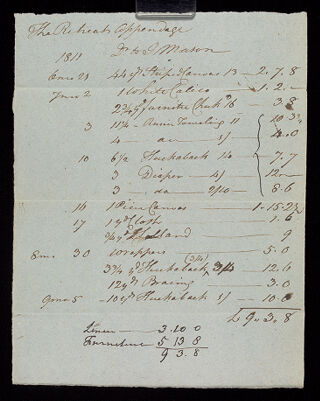 The Retreat Appendage
1811 Dr to J Mason
6mo 21 44 yds Canvas 13 — 2.7.8
7mo 2 1 White Calico — 1.2.–
2¾ yd Furniture Chek 16 — 3.8
3 11¼ – Towling 11 10.3¾
4 – do 1/ 4.0
10 6½ Huckaback 14 — 7.7
3 Diaper — 4/ — 12.–
3 – do 2/10 — 8.6
16 1 Piece Canvas — 1.15.2¾
17 1 yd Cloth 1.6
¾ yd Holland — 9
8mo 30 Wrappers — 5.0
3¾ yd Huckaback (3/4) 3/4 — 12.6
12 yds — 3.0
9mo 5 – 10 yd Huckaback 1/ — 10.0
£ 9.3.8
Linen — 3.10 0
Furniture 5 13 8
9 3.8